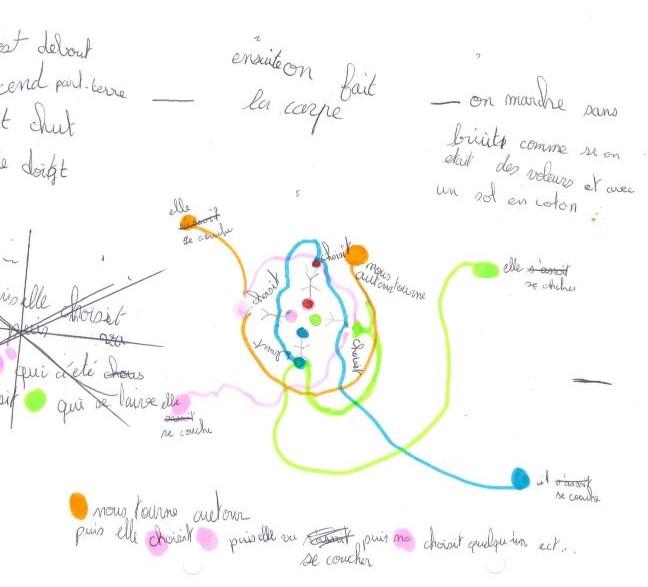 est debout
cend part-terre
t chut
e doigt
ensuite on fait
la carpe
— on marche sans
bruits comme si on
etait des voleurs et avec
un sol en coton
elle s'assoit
se couche
choisit
nous
autour tourne
choisit
choisit
choisit
elle s'assoit
se couche
elle choisit
qui a été
qui se laive elle
se couche
il s'assoit
se couche
nous tourne autour
puis elle choisit puis elle va puis choisit quelqu'un ect...
se coucher